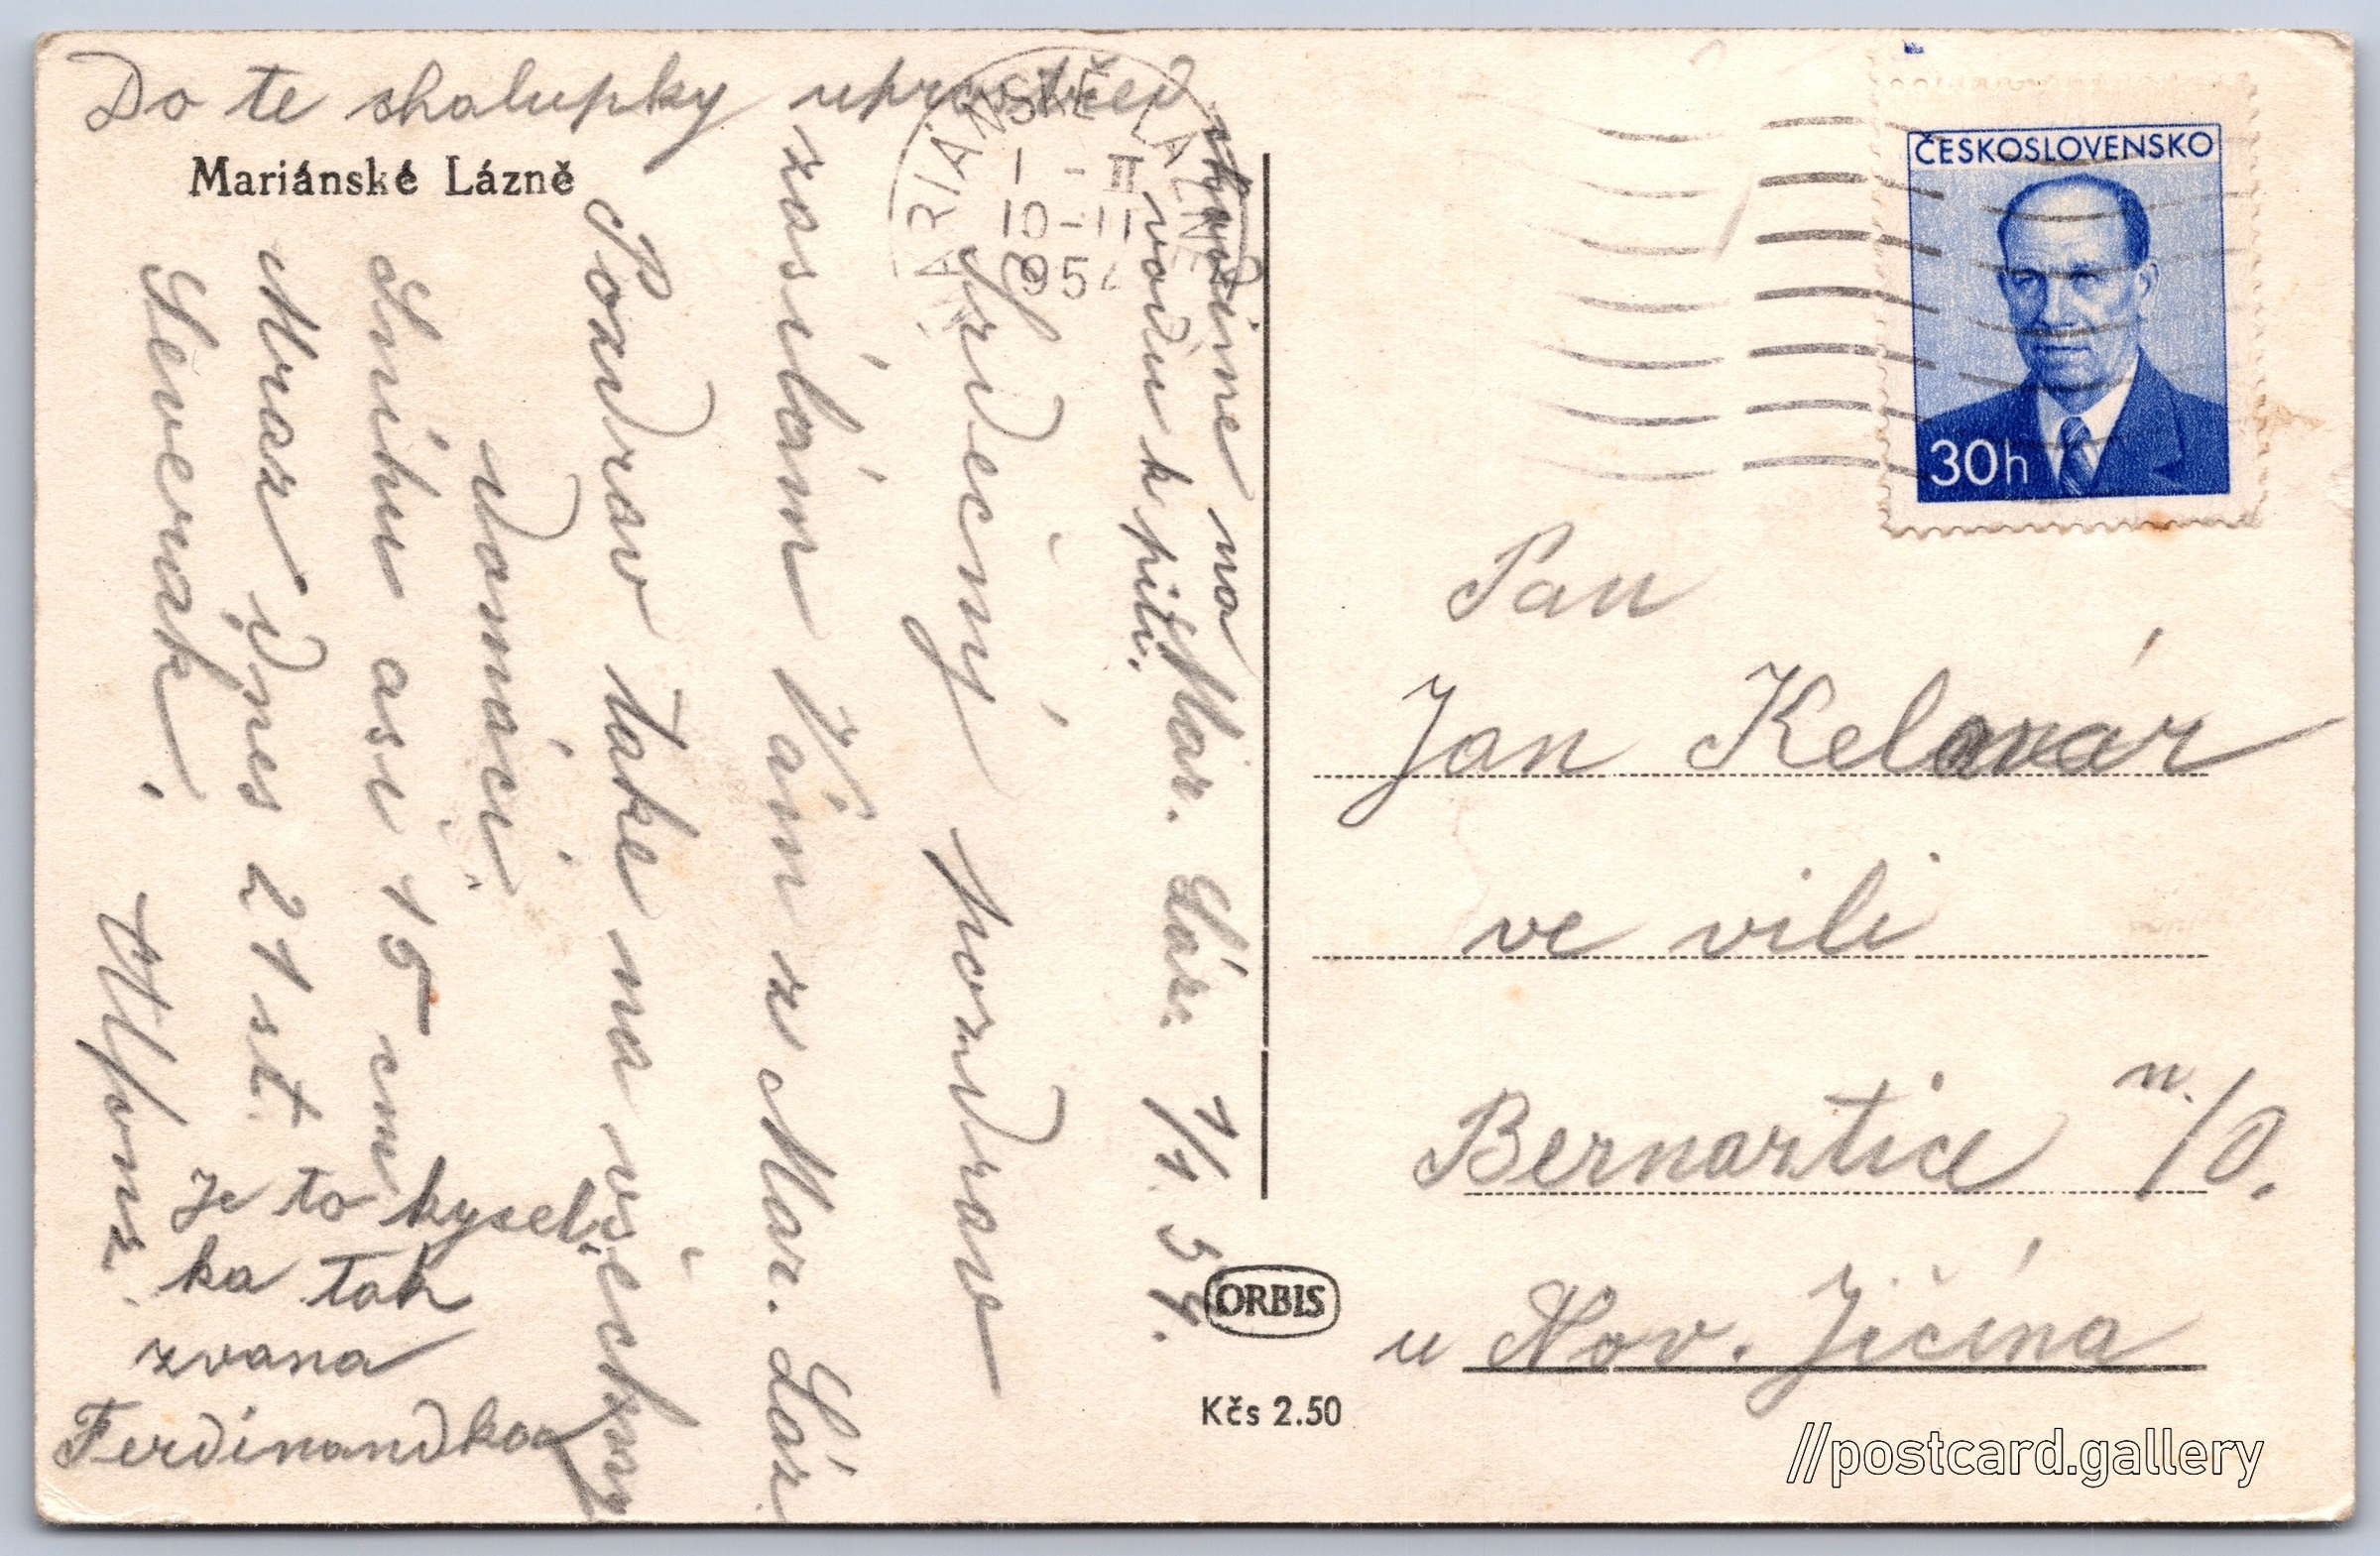 Do te shalupky uprostřed
Mariánské Lázně
chodime na
vodu k pití.
Mar. Láz. 1/1. 54.
Srdečný pozdrav
zasílám Vám z Mar. Láz
Pozdrav také na všechny
domácí,
Sníhu asi 15 cm
Mraz dnes 21 st.
Severák.
Je to kysel,
ka tak
zvana
Ferdinandka
MARIÁNSKÉ LÁZNĚ
1 - II
10-11
954
ČESKOSLOVENSKO
30h
Pan
Jan
ve vili
Bernartice n./O.
u Nov. Jičína
ORBIS
Kčs 2.50
//postcard.gallery